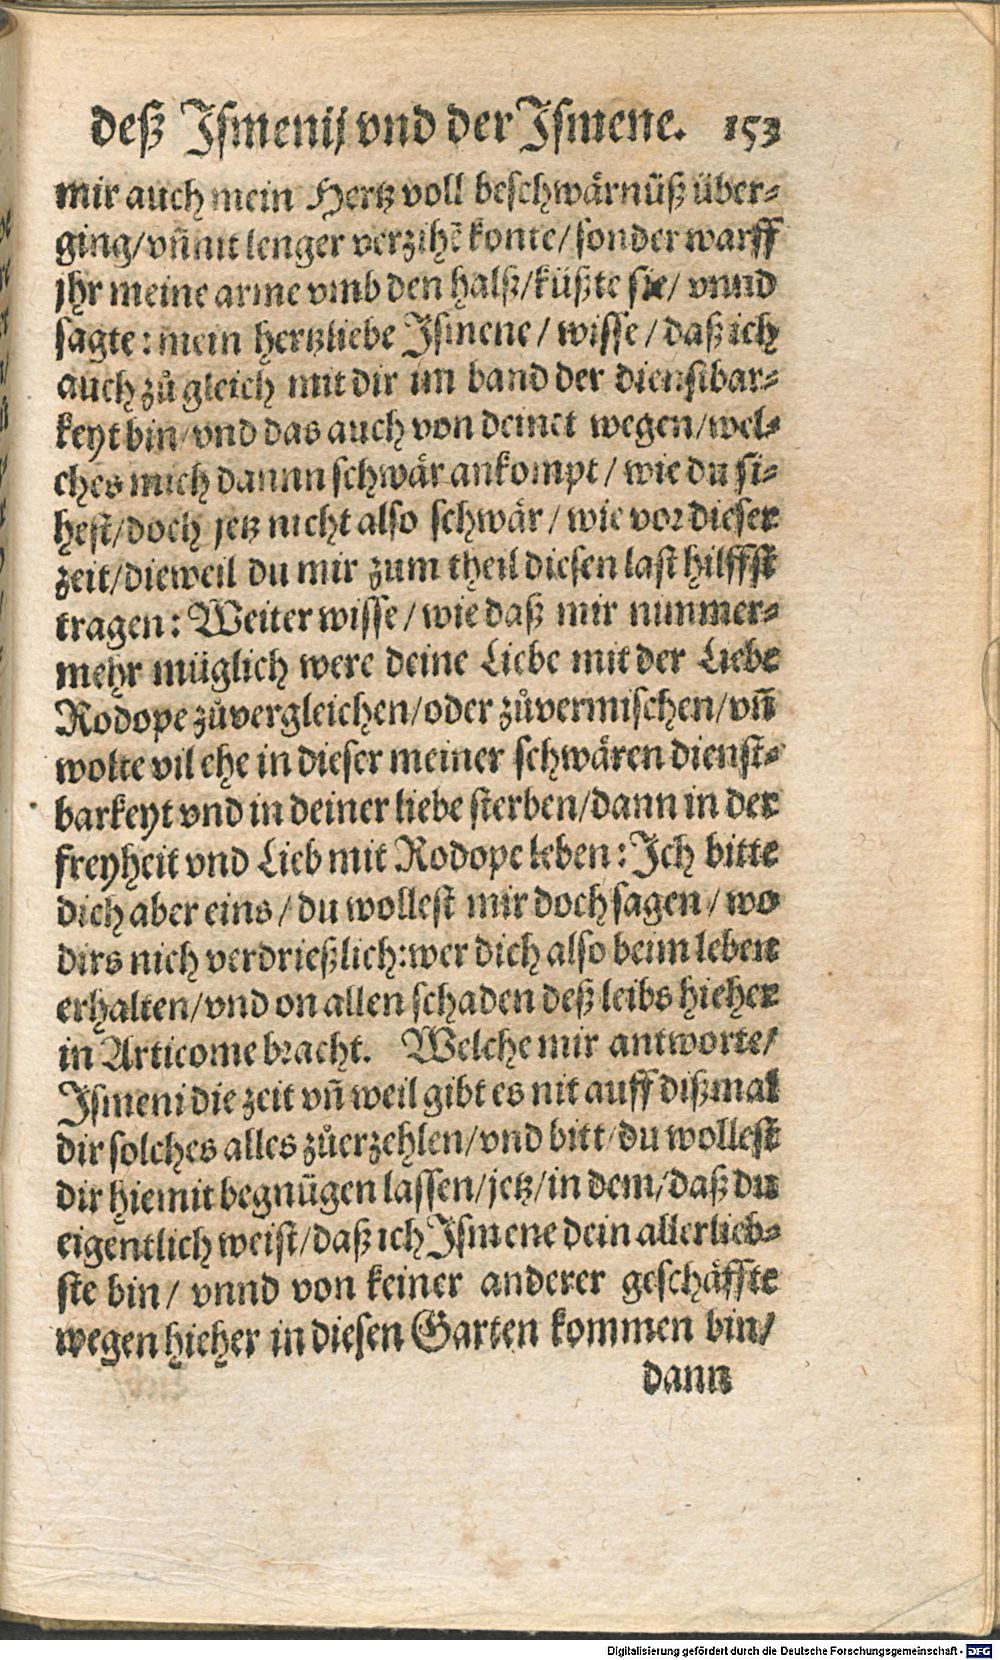 deß Ismenij vnd der Ismene. 153
mir auch mein Hertz voll beschwärnüß über⸗
ging/vñ nit lenger verzihẽ konte/sonder warff
jhr meine arme vmb den halß/küßte sie/ vnnd
sagte: mein hertzliebe Ismene/ wisse/ daß ich
auch zů gleich mit dir im band der dienstbar⸗
keyt bin/vnd das auch von deinet wegen/wel⸗
ches mich dannn schwär ankompt/ wie du si⸗
hest/doch jetz nicht also schwär/ wie vor dieser
zeit/dieweil du mir zum theil diesen last hilffst
tragen: Weiter wisse/ wie daß mir nimmer⸗
mehr müglich were deine Liebe mit der Liebe
Rodope zůvergleichen/oder zůvermischen/vñ
wolte vil ehe in dieser meiner schwären dienst⸗
barkeyt vnd in deiner liebe sterben/dann in der
freyheit vnd Lieb mit Rodope leben: Ich bitte
dich aber eins/ du wollest mir doch sagen/ wo
dirs nich verdrießlich: wer dich also beim leben
erhalten/vnd on allen schaden deß leibs hieher
in Articome bracht. Welche mir antworte/
Ismeni die zeit vñ weil gibt es nit auff dißmal
dir solches alles zůerzehlen/vnd bitt/du wollest
dir hiemit begnügen lassen/jetz/in dem/daß du
eigentlich weist/daß ich Ismene dein allerlieb⸗
ste bin/ vnnd von keiner anderer geschäffte
wegen hieher in diesen Garten kommen bin/
dann
Digitalisierung gefördert durch die Deutsche Forschungsgemeinschaft - DFG